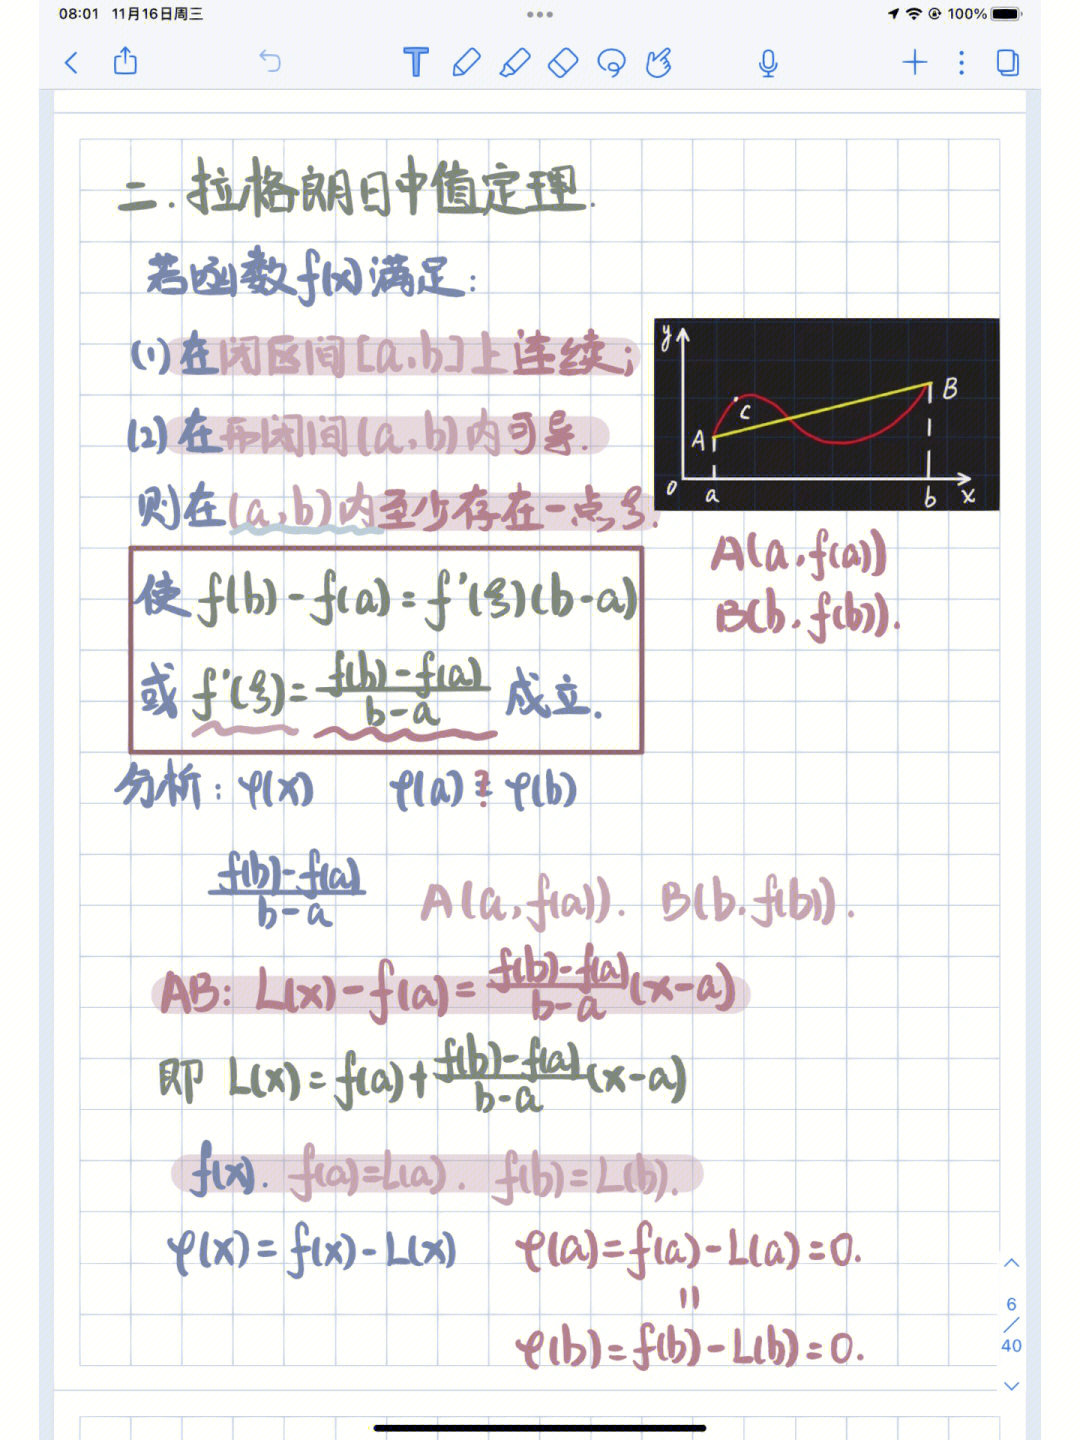 08:01 11月16日周三 100%
二.拉格朗日中值定理.
若函数f(x)满足:
(1)在闭区间[a,b]上连续;
(2)在开闭间(a,b)内可导.
则在(a,b)内至少存在一点ξ.
y
A
C
B
0 a b x
A(a,f(a))
B(b,f(b)).
使 f(b)-f(a)=f'(ξ)(b-a)
或 f'(ξ)= f(b)-f(a) / b-a 成立.
分析: φ(x) φ(a) ?= φ(b)
f(b)-f(a) / b-a A(a,f(a)). B(b,f(b)).
AB: L(x)-f(a)= f(b)-f(a) / b-a (x-a)
即 L(x)=f(a)+ f(b)-f(a) / b-a (x-a)
f(x). f(a)=L(a). f(b)=L(b).
φ(x)=f(x)-L(x) φ(a)=f(a)-L(a)=0.
=
φ(b)=f(b)-L(b)=0.
6
/
40